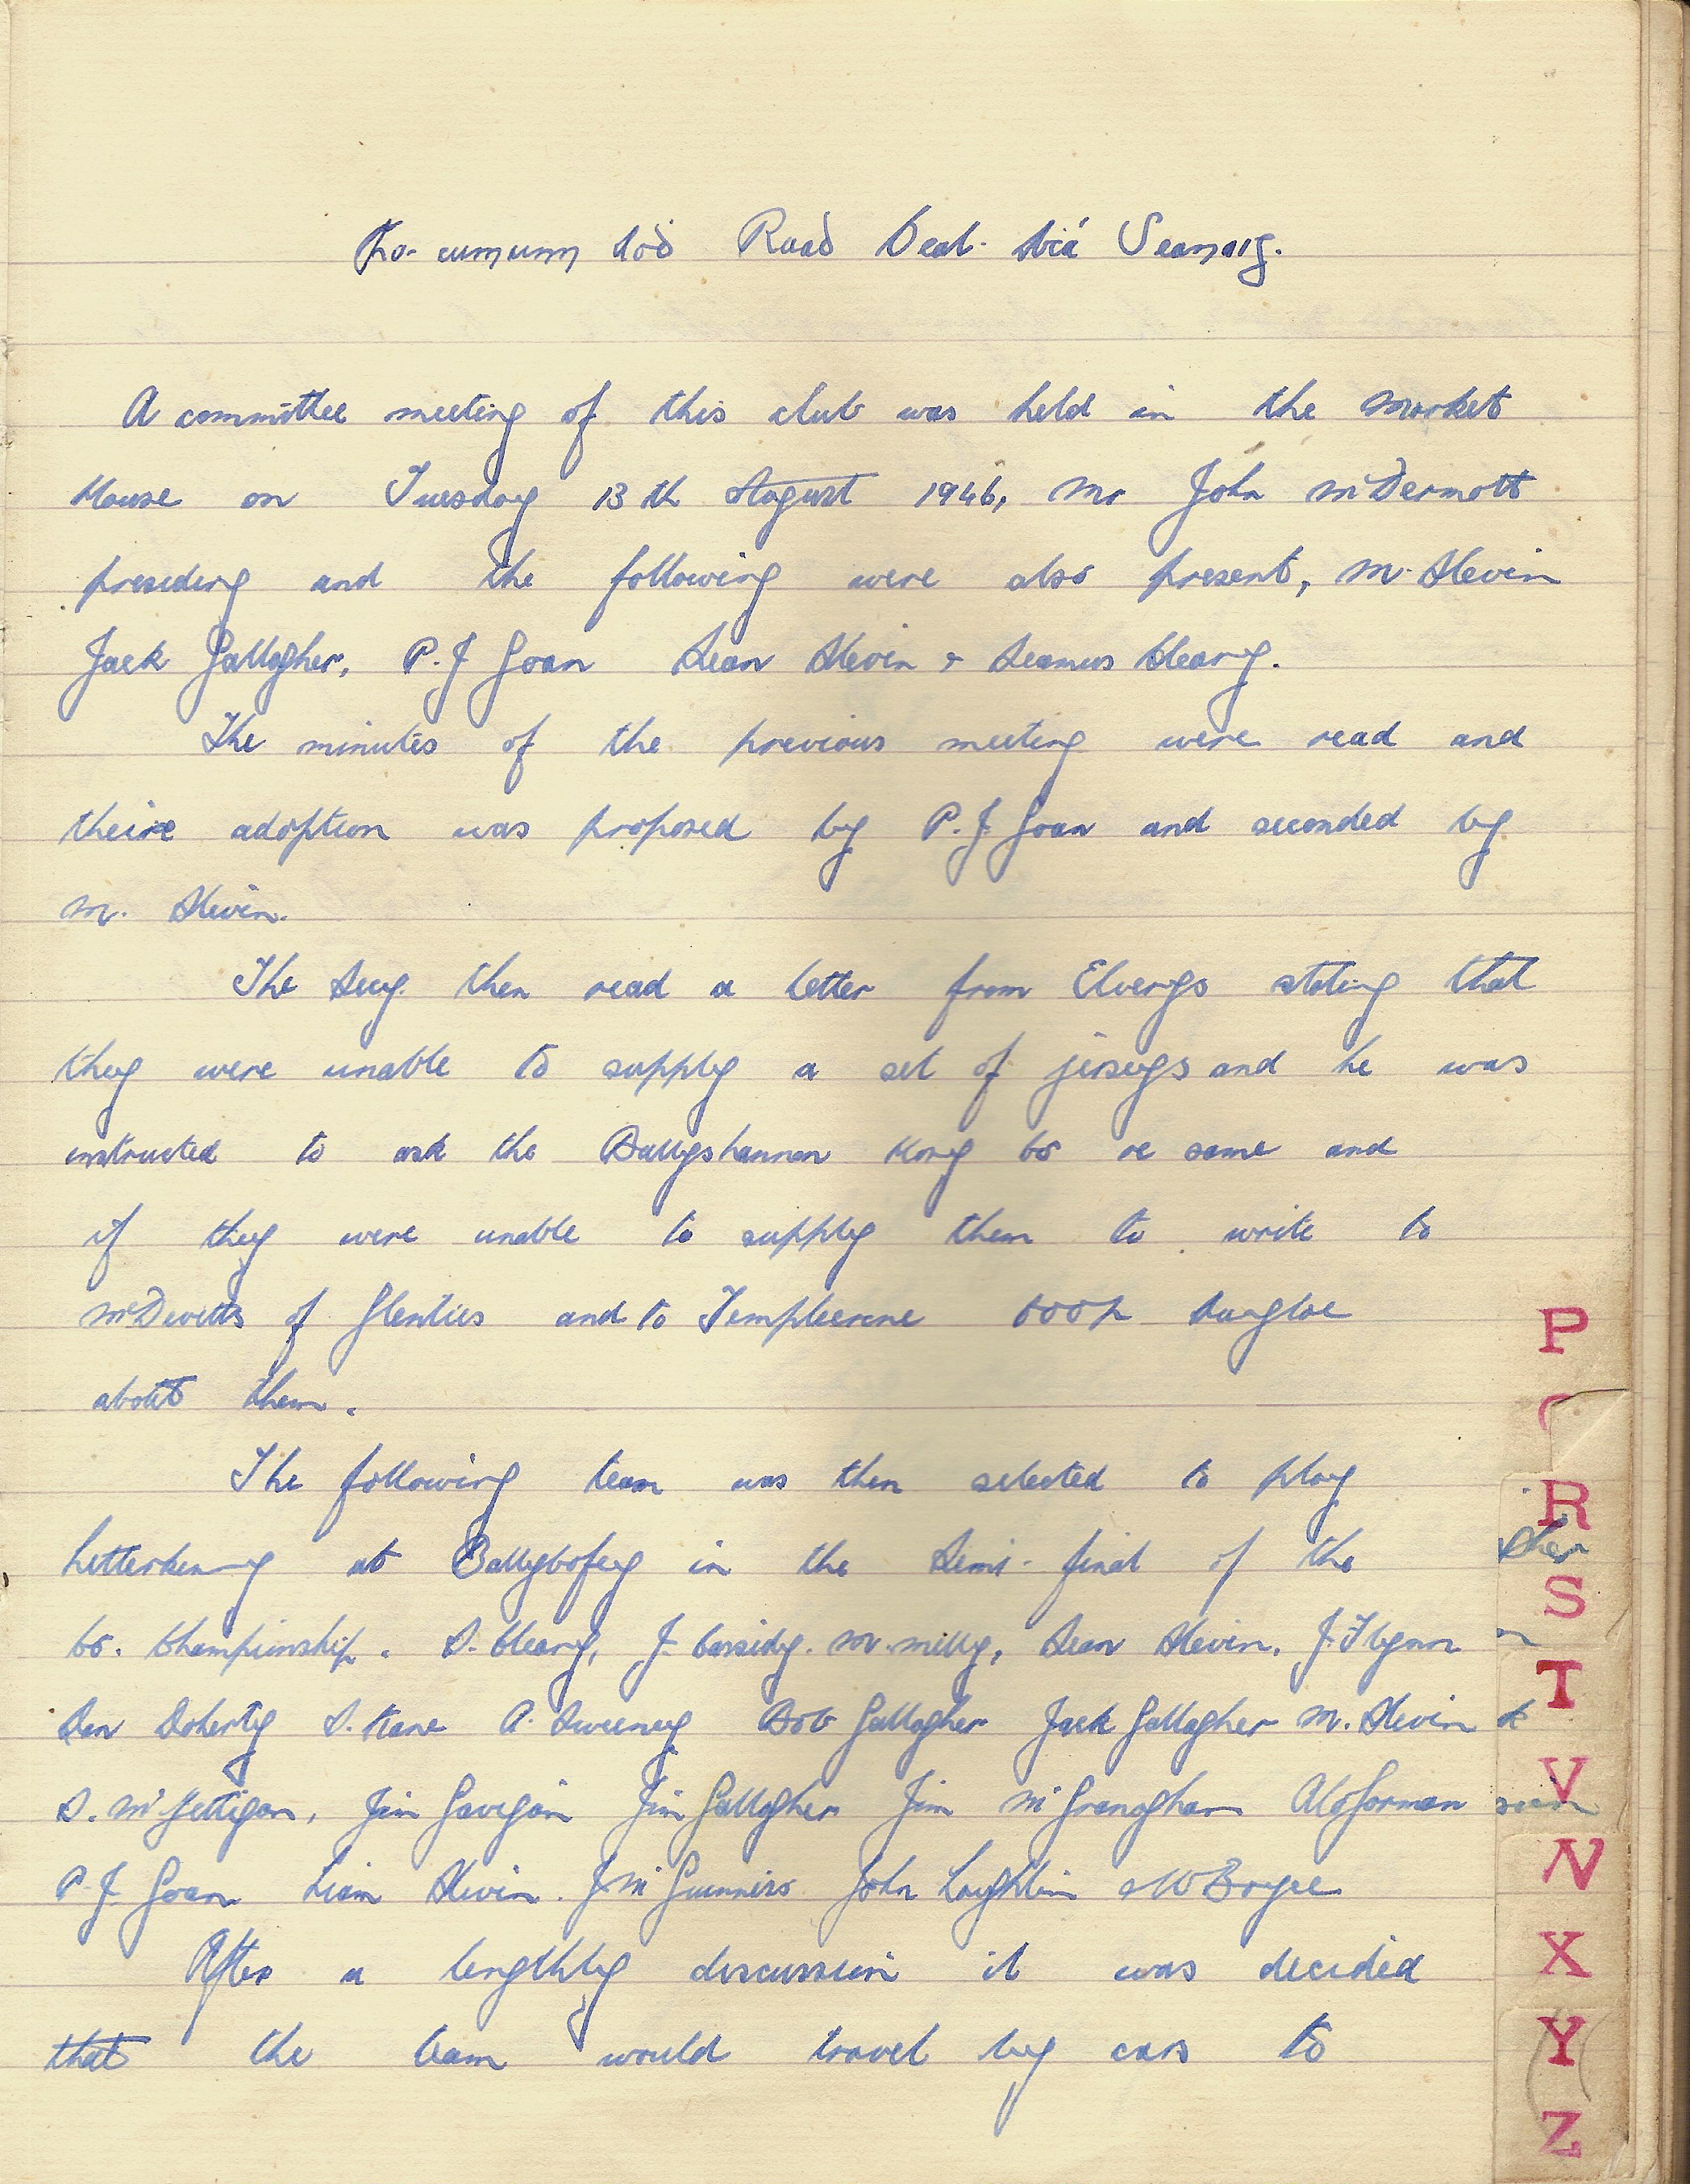 cumann Aod Ruad Beal Seanaig.
A committee meeting of this club was held in the Market
House on Tuesday 13th August 1946, Mr John McDermott
presiding and the following were also present, M. Slevin
Jack Gallagher, P.J Goan Sean Slevin & Seamus Cleary.
The minutes of the previous meeting were read and
theire adoption was proposed by P.J. Goan and seconded by
M. Slevin.
The Secy. then read a letter from Elverys stating that
they were unable to supply a set of jerseys and he was
instructed to ask the Ballyshannon Co re same and
if they were unable to supply them to write to
McDevitts of Glenties and to Templecrone COOP Dungloe
about them.
The following team was then selected to play
Letterkenny at Ballybofey in the Semi-final of the
Co. Championship. S. Cleary, J. Cassidy. M. Melly, Sean Slevin, J. Flynn
Dan Doherty S. Kane A. Sweeney Bob Gallagher Jack Gallagher M. Slevin
S. McGettigan, Jim Gavigan Jim Gallagher Jim McGranaghan Al OGorman
P.J. Goan Liam Slevin. J McGuinness John Loughlin
After a lengthly discussion it was decided
that the team would travel by cars to
P
R
S
T
V
W
X
Y
Z